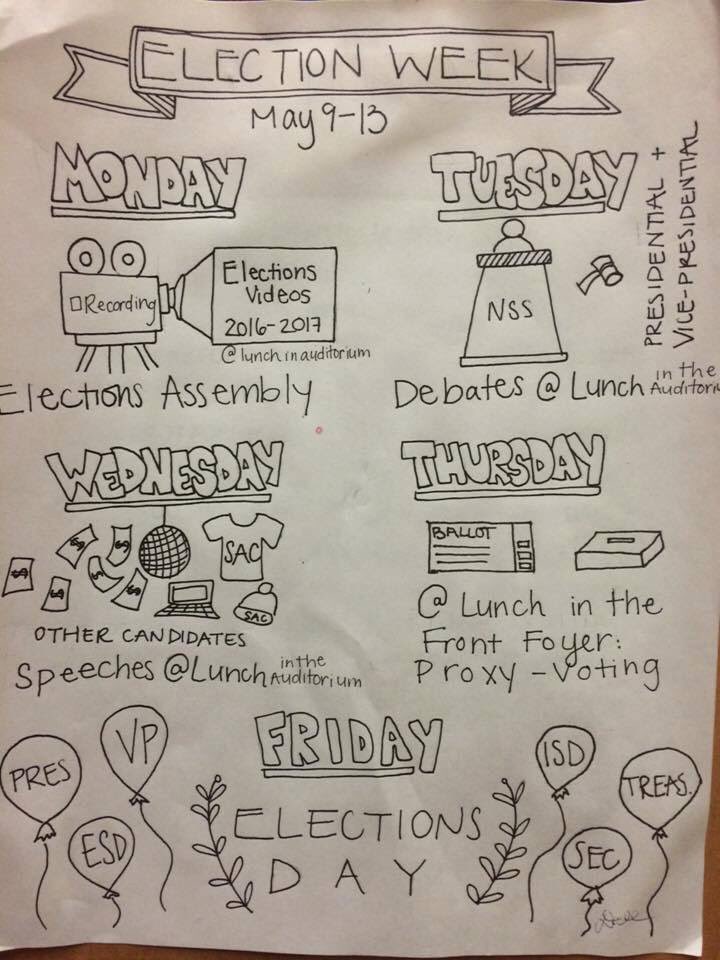 ELECTION WEEK
May 9-13
MONDAY
Recording
Elections
Videos
2016-2017
@ lunch in auditorium
Elections Assembly
TUESDAY
PRESIDENTIAL +
VICE-PRESIDENTIAL
NSS
Debates @ Lunch in the
Auditoriu
WEDNESDAY
$ $ $ $ $ $
SAC
SAC
OTHER CANDIDATES
Speeches @ Lunch in the
Auditorium
THURSDAY
BALLOT
@ Lunch in the
Front Foyer:
Proxy-Voting
FRIDAY
ELECTIONS
DAY
PRES
VP
ESD
ISD
TREAS.
SEC